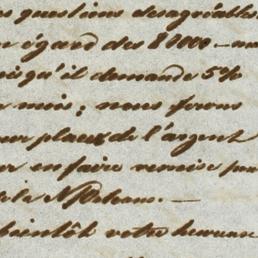 es questions desagréables
n égard des 81000 — 
squ'il demande 5%
mois; nous ferons
our placer de l'argent
er en faire remise pour
de la N Orleans. —
bientôt votre heureux